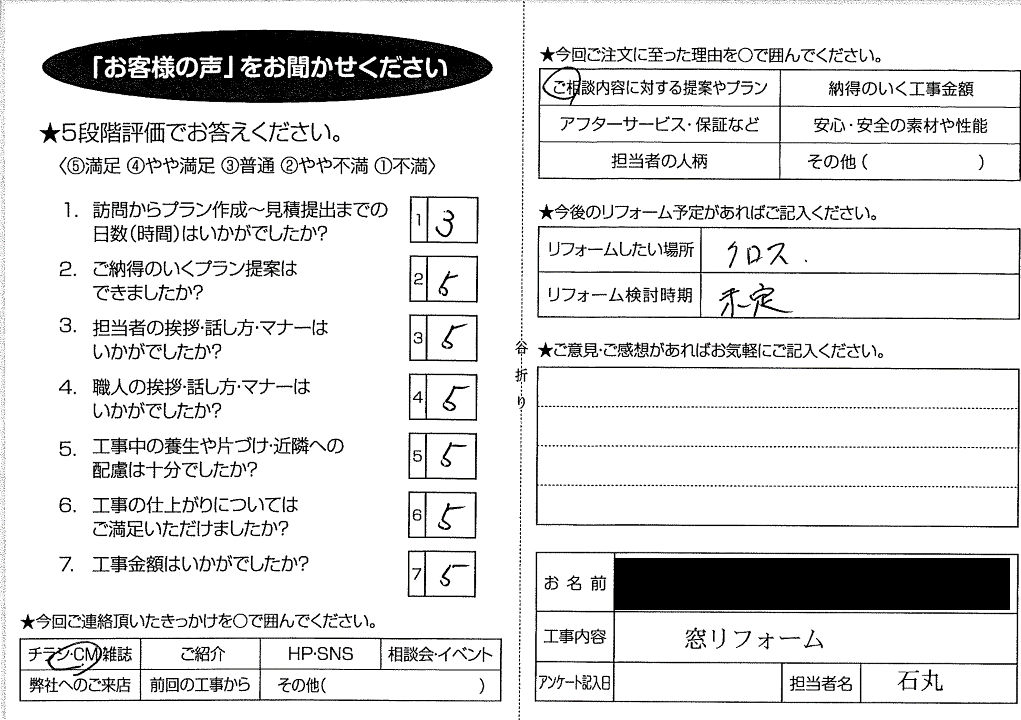 「お客様の声」をお聞かせください
★5段階評価でお答えください。
〈⑤満足 ④やや満足 ③普通 ②やや不満 ①不満〉
1. 訪問からプラン作成～見積提出までの
日数(時間)はいかがでしたか?
1 3
2. ご納得のいくプラン提案は
できましたか?
2 5
3. 担当者の挨拶・話し方・マナーは
いかがでしたか?
3 5
4. 職人の挨拶・話し方・マナーは
いかがでしたか?
4 5
5. 工事中の養生や片づけ・近隣への
配慮は十分でしたか?
5 5
6. 工事の仕上がりについては
ご満足いただけましたか?
6 5
7. 工事金額はいかがでしたか?
7 5
★今回ご連絡頂いたきっかけを〇で囲んでください。
チラシ・CM・雑誌 ご紹介 HP・SNS 相談会・イベント
弊社へのご来店 前回の工事から その他( )
谷折り
★今回ご注文に至った理由を〇で囲んでください。
ご相談内容に対する提案やプラン 納得のいく工事金額
アフターサービス・保証など 安心・安全の素材や性能
担当者の人柄 その他( )
★今後のリフォーム予定があればご記入ください。
リフォームしたい場所 クロス.
リフォーム検討時期 未定
★ご意見・ご感想があればお気軽にご記入ください。
お名前
工事内容 窓リフォーム
アンケート記入日 担当者名 石丸